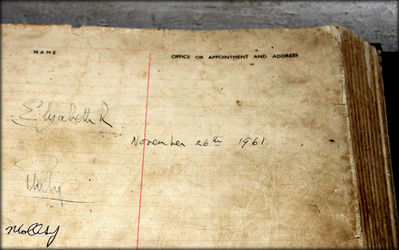 NAME
OFFICE OR APPOINTMENT AND ADDRESS
Elizabeth R
November 26th 1961.
Philip